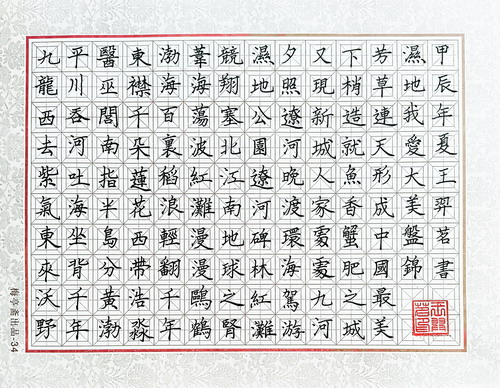 九龍西去紫氣東來沃野
平川吞河吐海坐背千年
醫巫閭南指半島分黃渤
東襟千朵蓮花西帶浩淼
渤海百裏稻浪輕翻千年
葦海蕩波紅灘漫漫鷗鶴
競翔塞北江南地球之腎
濕地公園遼河碑林紅灘
夕照遼河晚渡環海駕游
又現新城人家處處九河
下梢造就魚香蟹肥之城
芳草連天形成中國最美
濕地我愛大美盤錦
甲辰年夏王羿茗書
梅亭斋出品-34